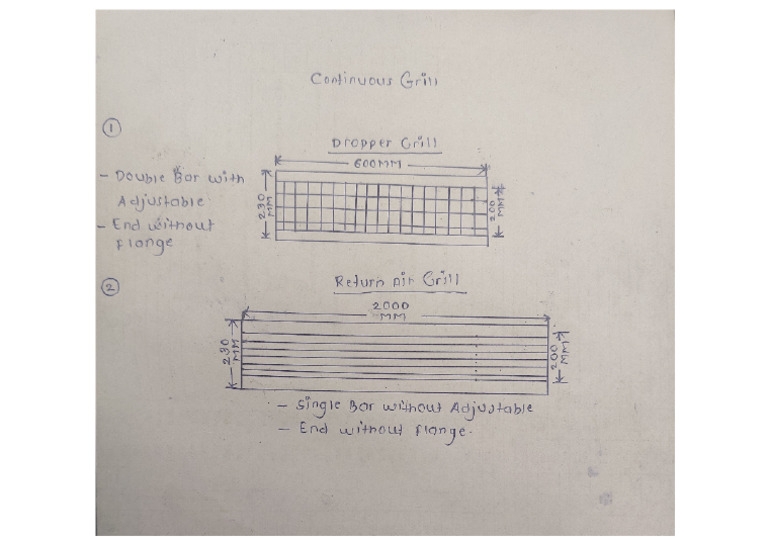 Continuous Grill
1
Dropper Grill
600MM
- Double Bar with
Adjustable
- End without
flange
230
MM
200
MM
2
Return Air Grill
2000
MM
230
MM
200
MM
- Single Bar without Adjustable
- End without flange.